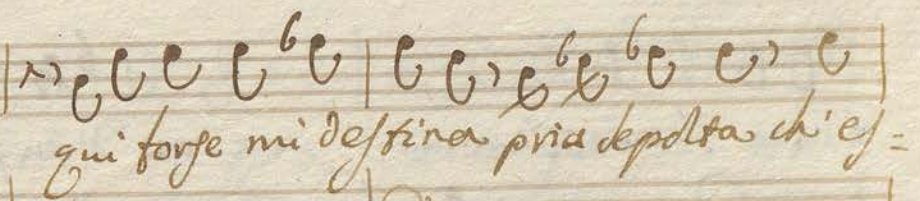 qui forse mi destina pria sepolta ch'es=